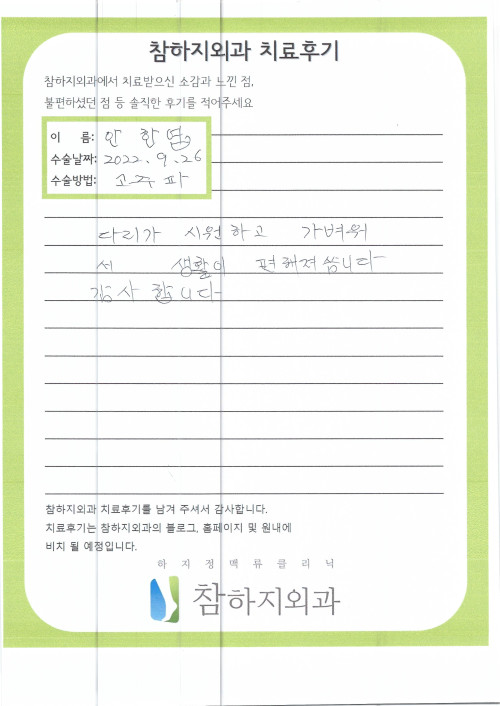 참하지외과 치료후기
참하지외과에서 치료받으신 소감과 느낀 점,
불편하셨던 점 등 솔직한 후기를 적어주세요
이 름: 안한
수술날짜: 2022. 9. 26
수술방법: 고주파
다리가 시원하고 가벼워
서 생활이 편해져씁니다
감사합니다
참하지외과 치료후기를 남겨 주셔서 감사합니다.
치료후기는 참하지외과의 블로그, 홈페이지 및 원내에
비치 될 예정입니다.
하지정맥류클리닉
참하지외과